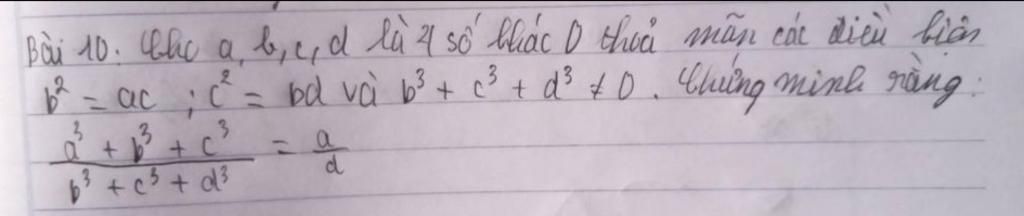 Bài 10: Cho a, b, c, d là 4 số khác 0 thoả mãn các điều kiện
b² = ac ; c² = bd và b³ + c³ + d³ ≠ 0. Chứng minh rằng:
a³ + b³ + c³ / b³ + c³ + d³ = a/d